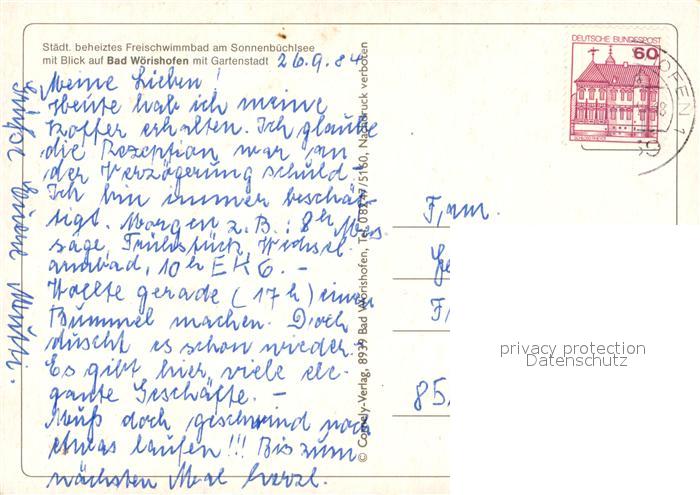 Städt. beheiztes Freischwimmbad am Sonnenbüchlsee
mit Blick auf Bad Wörishofen mit Gartenstadt
26.9.84
Meine Lieben!
Heute hab ich meine
Koffer erhalten. Ich glaube
die Rezeption war an
der Verzögerung schuld.
Ich bin immer beschäf
tigt. Morgen z. B.: 8h Mas
sage, Frühstück, Wechsel
armbad, 10h EKG. –
Wollte gerade (17h) einen
Bummel machen. Doch
duscht es schon wieder.
Es gibt hier viele ele-
gante Geschäfte. –
Muß doch geschwind noch
etwas laufen!!! Bis zum
nächsten Mal herzl.
Grüße Eure Mutti.
© Cornely-Verlag, 8939 Bad Wörishofen, Tel. 08247/5160, Nachdruck verboten
DEUTSCHE BUNDESPOST
60
SCHLOSS RHEYDT
HOFEN 1
Fam.
Ge
F
85
privacy protection
Datenschutz